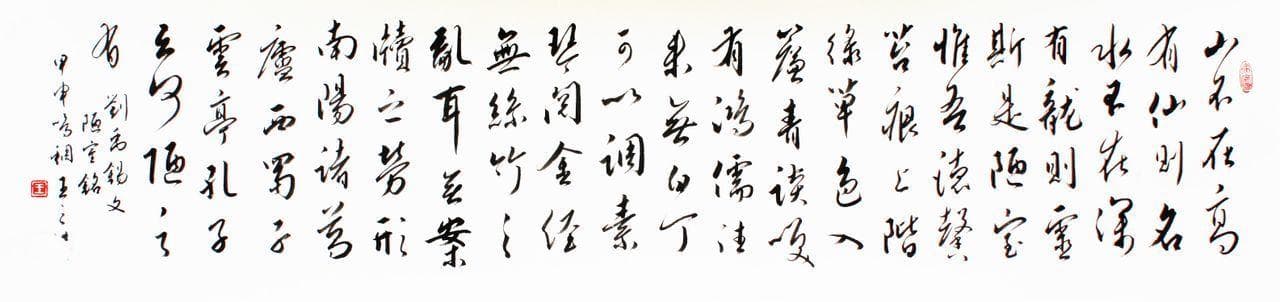 山不在高
有仙則名
水不在深
有龍則靈
斯是陋室
惟吾德馨
苔痕上階
綠草色入
簾青談笑
有鴻儒往
來無白丁
可以調素
琴閱金經
無絲竹之
亂耳無案
牘之勞形
南陽諸葛
廬西蜀子
雲亭孔子
云何陋之
有
劉禹錫文
陋室銘
甲申鳴蜩王